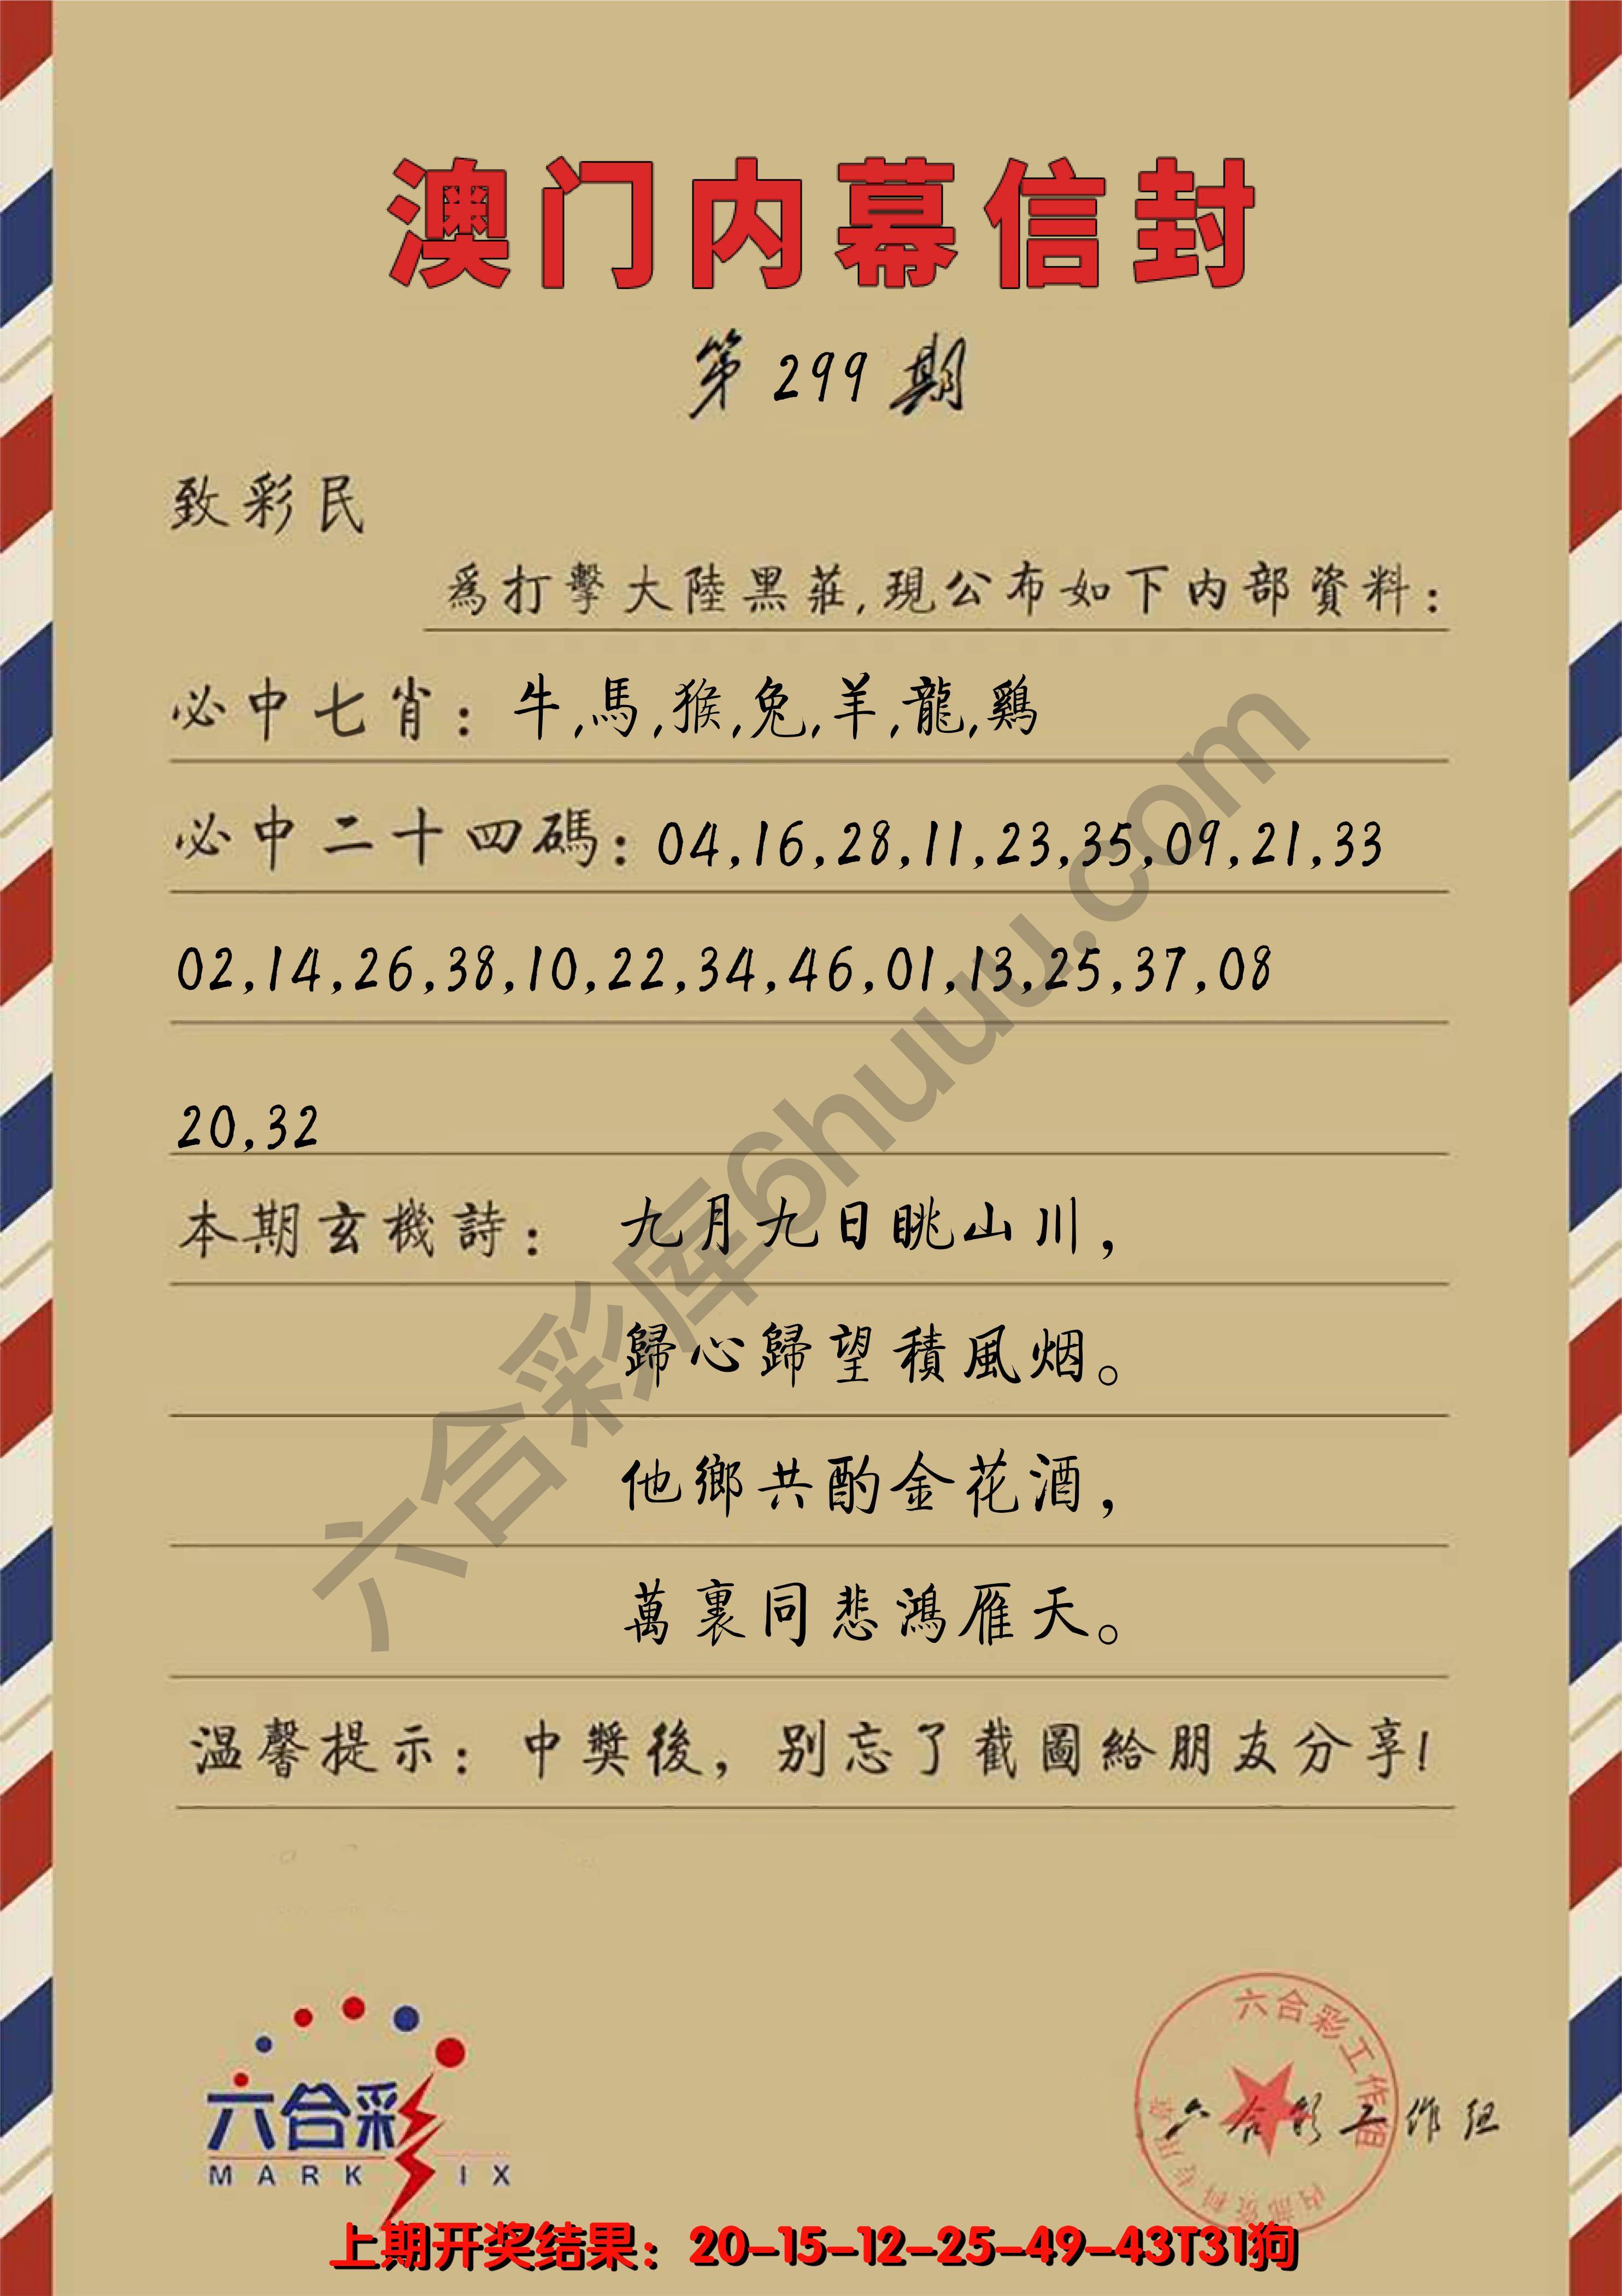 澳门内幕信封
第299期
致彩民
爲打擊大陸黑莊,現公布如下内部資料:
必中七肖: 牛,馬,猴,兔,羊,龍,鷄
必中二十四碼: 04,16,28,11,23,35,09,21,33
02,14,26,38,10,22,34,46,01,13,25,37,08
20,32
本期玄機詩: 九月九日眺山川,
歸心歸望積風烟。
他鄉共酌金花酒,
萬裏同悲鴻雁天。
温馨提示: 中獎後, 别忘了截圖給朋友分享!
六合彩库6huuu.com
六合彩
MARK IX
六合彩工作组
内部资料专用章
六合彩工作组
上期开奖结果: 20-15-12-25-49-43T31狗